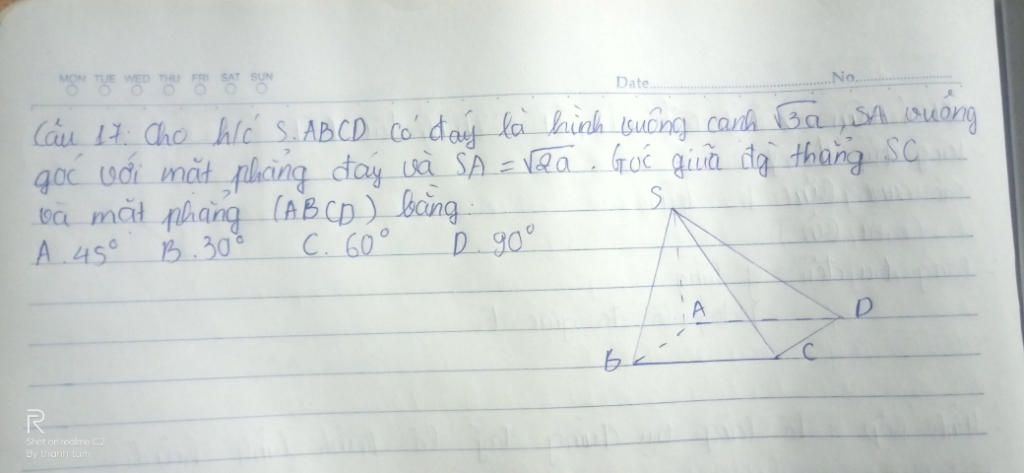 MON TUE WED THU FRI SAT SUN
Date No.
Câu 17: Cho h/c S.ABCD có đáy là hình vuông cạnh √3a, SA vuông
góc với mặt phẳng đáy và SA = √2a. Góc giữa đg thẳng SC
và mặt phẳng (ABCD) bằng.
A. 45° B. 30° C. 60° D. 90°
S
A D
B C
R
Shot on realme C2
By thanh tum